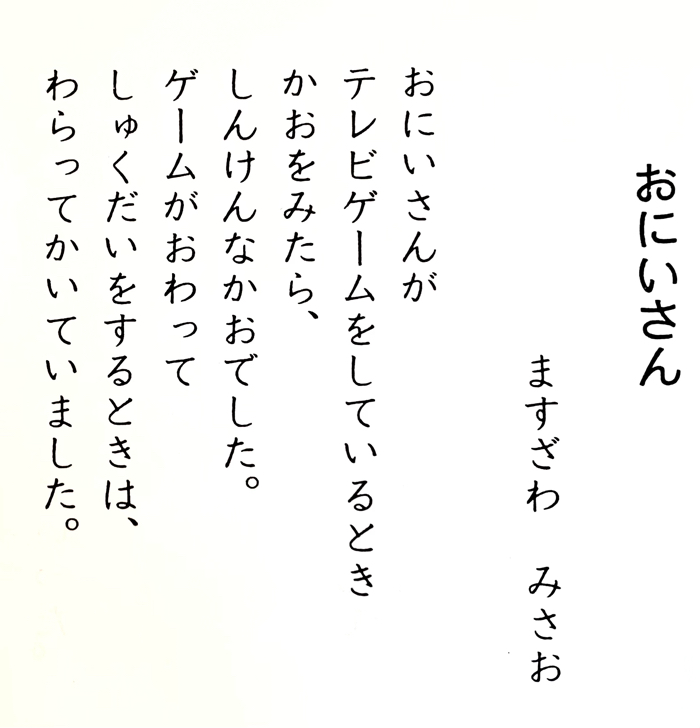 おにいさん
ますざわ　みさお
おにいさんが
テレビゲームをしているとき
かおをみたら、
しんけんなかおでした。
ゲームがおわって
しゅくだいをするときは、
わらってかいていました。